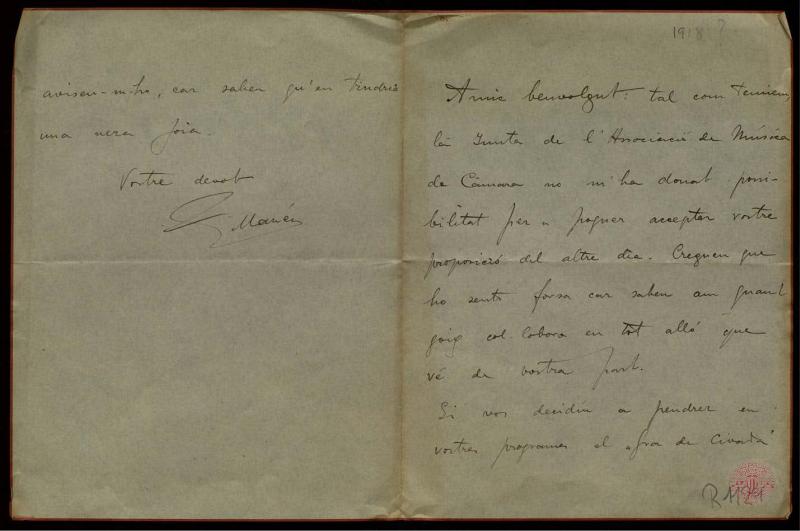 1918?
Amic benvolgut: tal com temiem,
la Junta de l'Associació de Música
de Càmara no m'ha donat possi-
bilitat per a poguer acceptar vostre
proposició del altre dia. Cregueu que
ho sento forsa car saben am quant
goig col·laboro en tot allò que
vé de vostra part.
Si vos decidiu a pendrer en
vostres programes el "Gra de Civada"
R 1121
aviseu-m-ho, car saben qu'en tindria
una vera joia.
Vostre devot
J. Manén